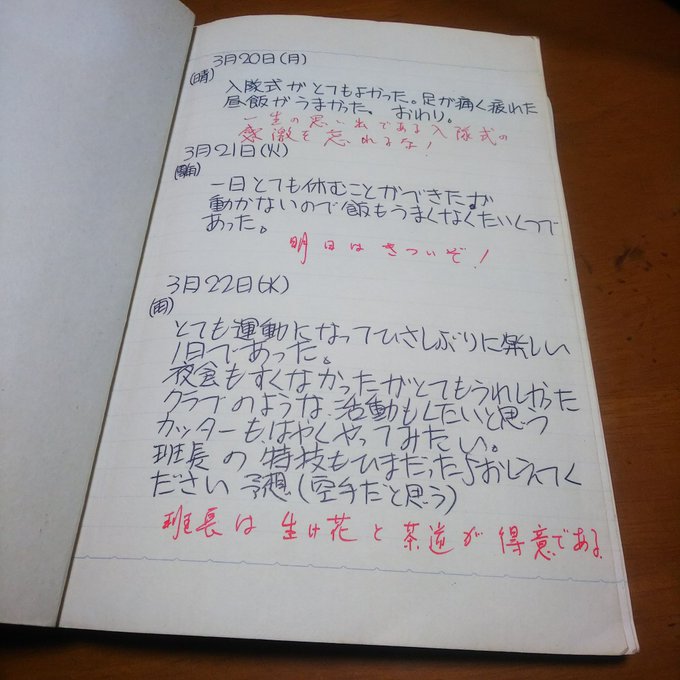 3月20日(月)
(晴)
入隊式がとてもよかった。足が痛く疲れた
昼飯がうまかった。おわり。
一生の思い出である入隊式の
感激を忘れるな!
3月21日(火)
一日とても休むことができたが
動かないので飯もうまくなくたいくつで
あった。
明日はきついぞ!
3月22日(水)
(雨)
とても運動になってひさしぶりに楽しい
1日であった。
夜食もすくなかったがとてもうれしかった
クラブのような活動もしたいと思う
カッターもはやくやってみたい。
班長の特技もひまだったらおしえてく
ださい 予想(空手だと思う)
班長は生け花と茶道が得意である